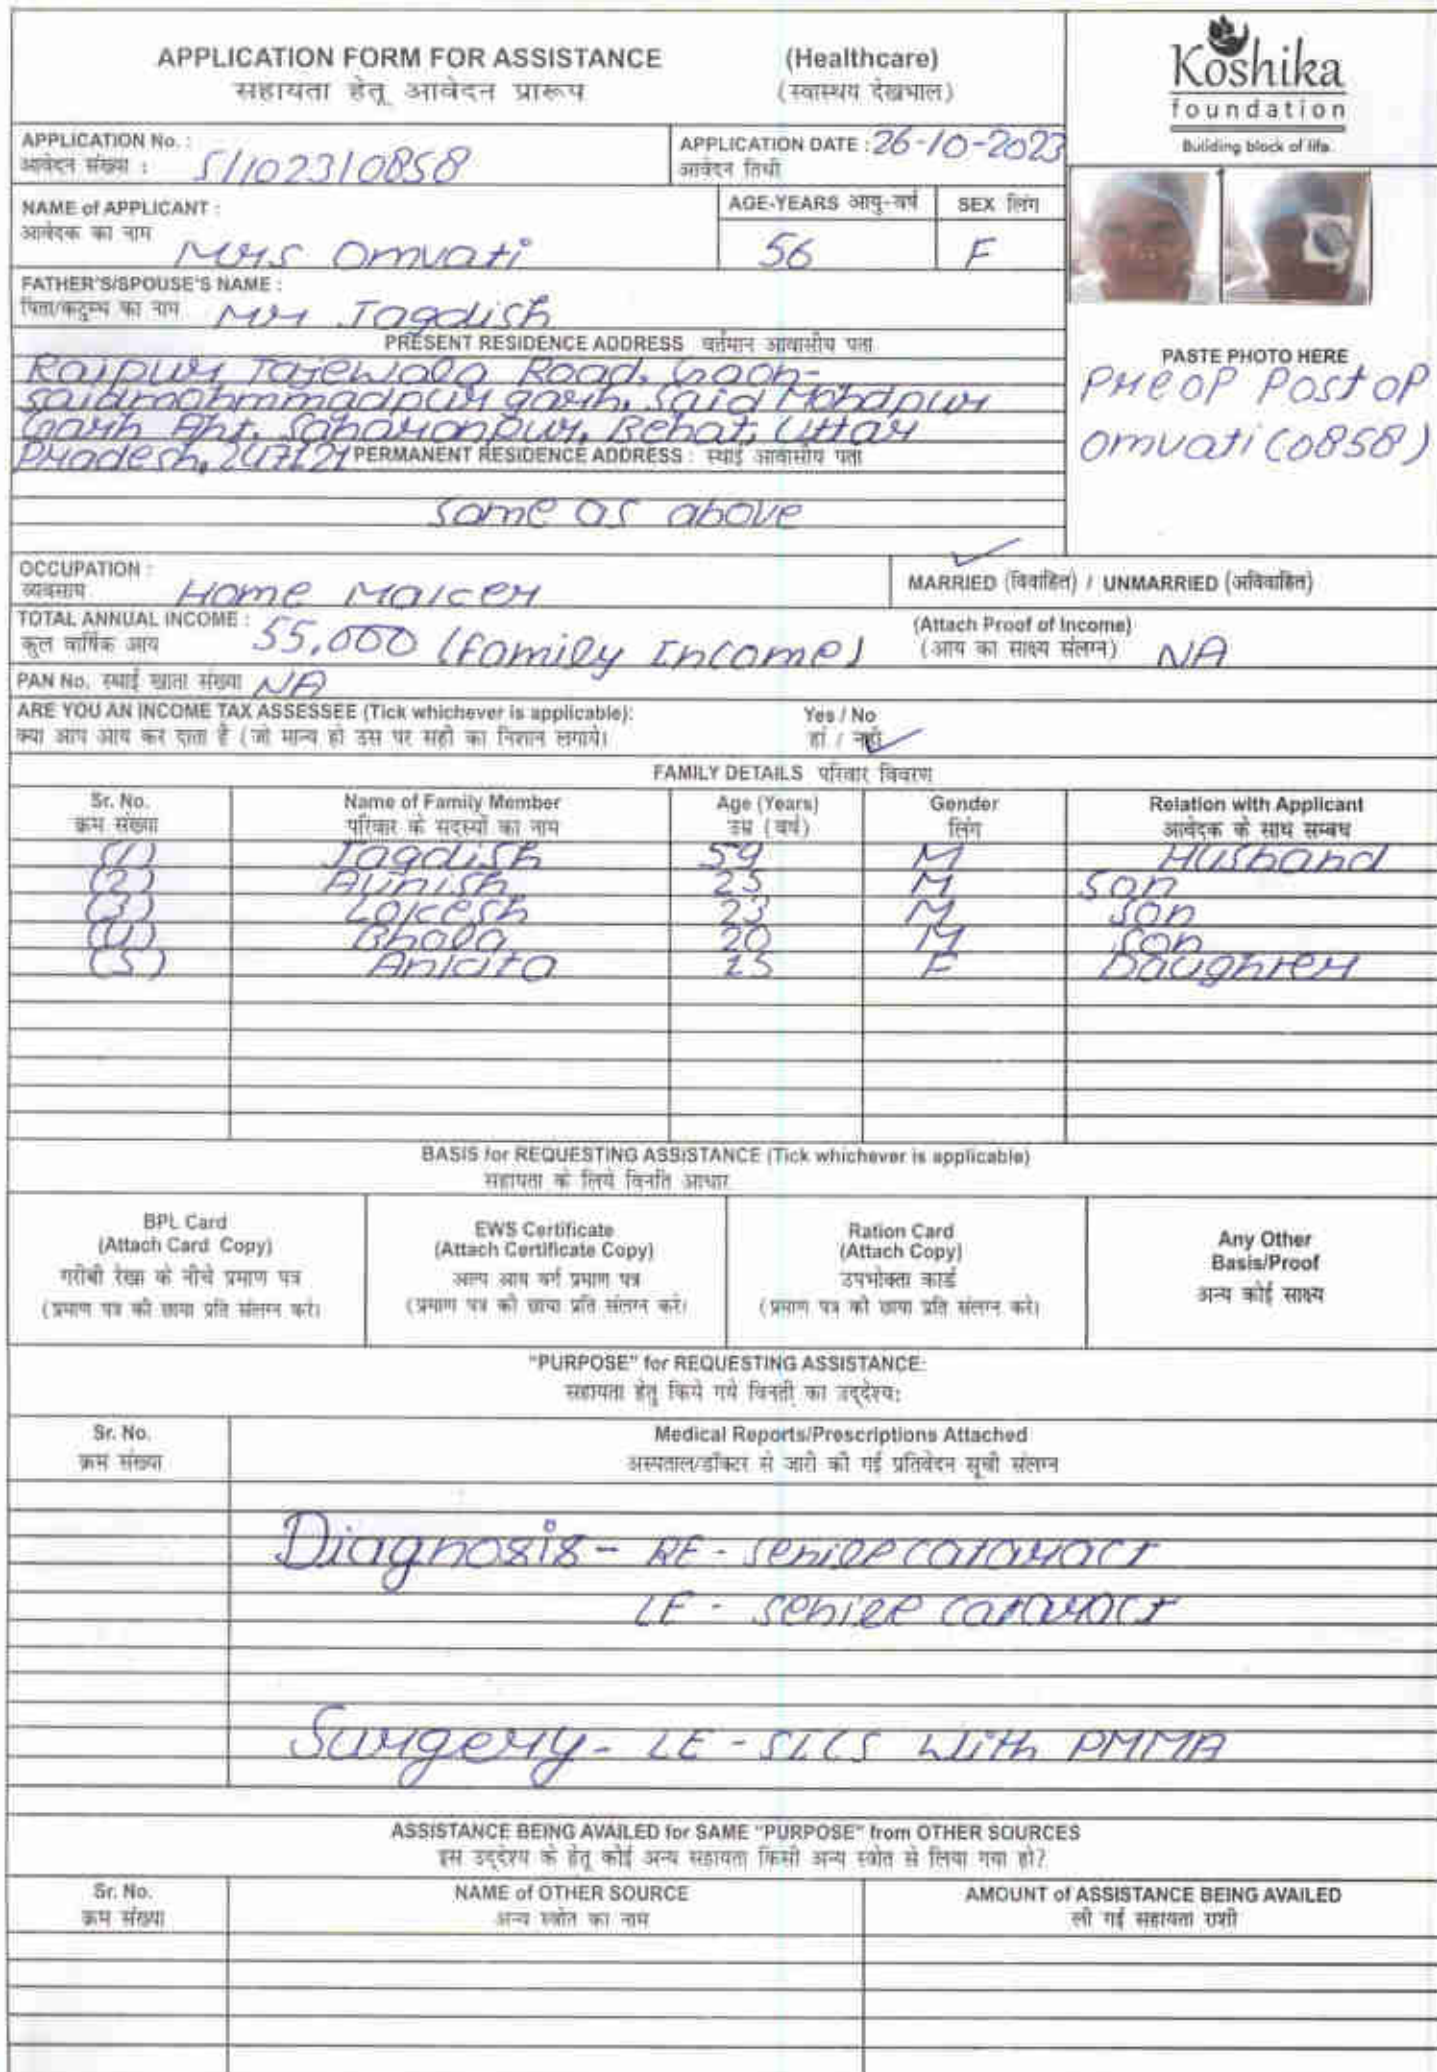 APPLICATION FORM FOR ASSISTANCE (Healthcare)
सहायता हेतू आवेदन प्रारूप (स्वास्थय देखभाल)
Koshika
foundation
Building block of life.
APPLICATION No. : S/102310858
आवेदन संख्या :
APPLICATION DATE : 26-10-2023
आवेदन तिथी
NAME of APPLICANT :
आवेदक का नाम Mrs Omvati
AGE-YEARS आयु-वर्ष 56
SEX लिंग F
FATHER'S/SPOUSE'S NAME :
पिता/कटुम्ब का नाम Mr Jagdish
PRESENT RESIDENCE ADDRESS वर्तमान आवासीय पता
Raipur, Tajewala Road, Gaon-
saidmohmmadpur garh, Said Mohdpur
Garh Aht, Saharanpur, Behat, Uttar
Pradesh, 247121
PERMANENT RESIDENCE ADDRESS : स्थाई आवासीय पता
Same as above
PASTE PHOTO HERE
Preop Post op
Omvati (0858)
OCCUPATION :
व्यवसाय Home Maker
MARRIED (विवाहित) / UNMARRIED (अविवाहित)
TOTAL ANNUAL INCOME :
कुल वार्षिक आय 55,000 (Family Income)
(Attach Proof of Income)
(आय का साक्ष्य संलग्न) NA
PAN No. स्थाई खाता संख्या NA
ARE YOU AN INCOME TAX ASSESSEE (Tick whichever is applicable): Yes / No
क्या आप आय कर दाता है (जो मान्य हो उस पर सही का निशान लगाये। हां / नहीं
FAMILY DETAILS परिवार विवरण
Sr. No. Name of Family Member Age (Years) Gender Relation with Applicant
क्रम संख्या परिवार के सदस्यों का नाम उम्र (वर्ष) लिंग आवेदक के साथ सम्बंध
(1) Jagdish 59 M Husband
(2) Avnish 25 M Son
(3) Lokesh 23 M Son
(4) Bhola 20 M Son
(5) Ankita 15 F Daughter
BASIS for REQUESTING ASSISTANCE (Tick whichever is applicable)
सहायता के लिये विनति आधार
BPL Card
(Attach Card Copy)
गरीबी रेखा के नीचे प्रमाण पत्र
(प्रमाण पत्र की छाया प्रति संलग्न करे।
EWS Certificate
(Attach Certificate Copy)
अल्प आय वर्ग प्रमाण पत्र
(प्रमाण पत्र की छाया प्रति संलग्न करे।
Ration Card
(Attach Copy)
उपभोक्ता कार्ड
(प्रमाण पत्र की छाया प्रति संलग्न करे।
Any Other
Basis/Proof
अन्य कोई साक्ष्य
"PURPOSE" for REQUESTING ASSISTANCE:
सहायता हेतु किये गये विनती का उद्देश्य:
Sr. No. Medical Reports/Prescriptions Attached
क्रम संख्या अस्पताल/डॉक्टर से जारी की गई प्रतिवेदन सूची संलग्न
Diagnosis - RE - senile cataract
LE - senile cataract
Surgery - LE - SICS with PMMA
ASSISTANCE BEING AVAILED for SAME "PURPOSE" from OTHER SOURCES
इस उद्देश्य के हेतू कोई अन्य सहायता किसी अन्य स्त्रोत से लिया गया हो?
Sr. No. NAME of OTHER SOURCE AMOUNT of ASSISTANCE BEING AVAILED
क्रम संख्या अन्य स्त्रोत का नाम ली गई सहायता राशी